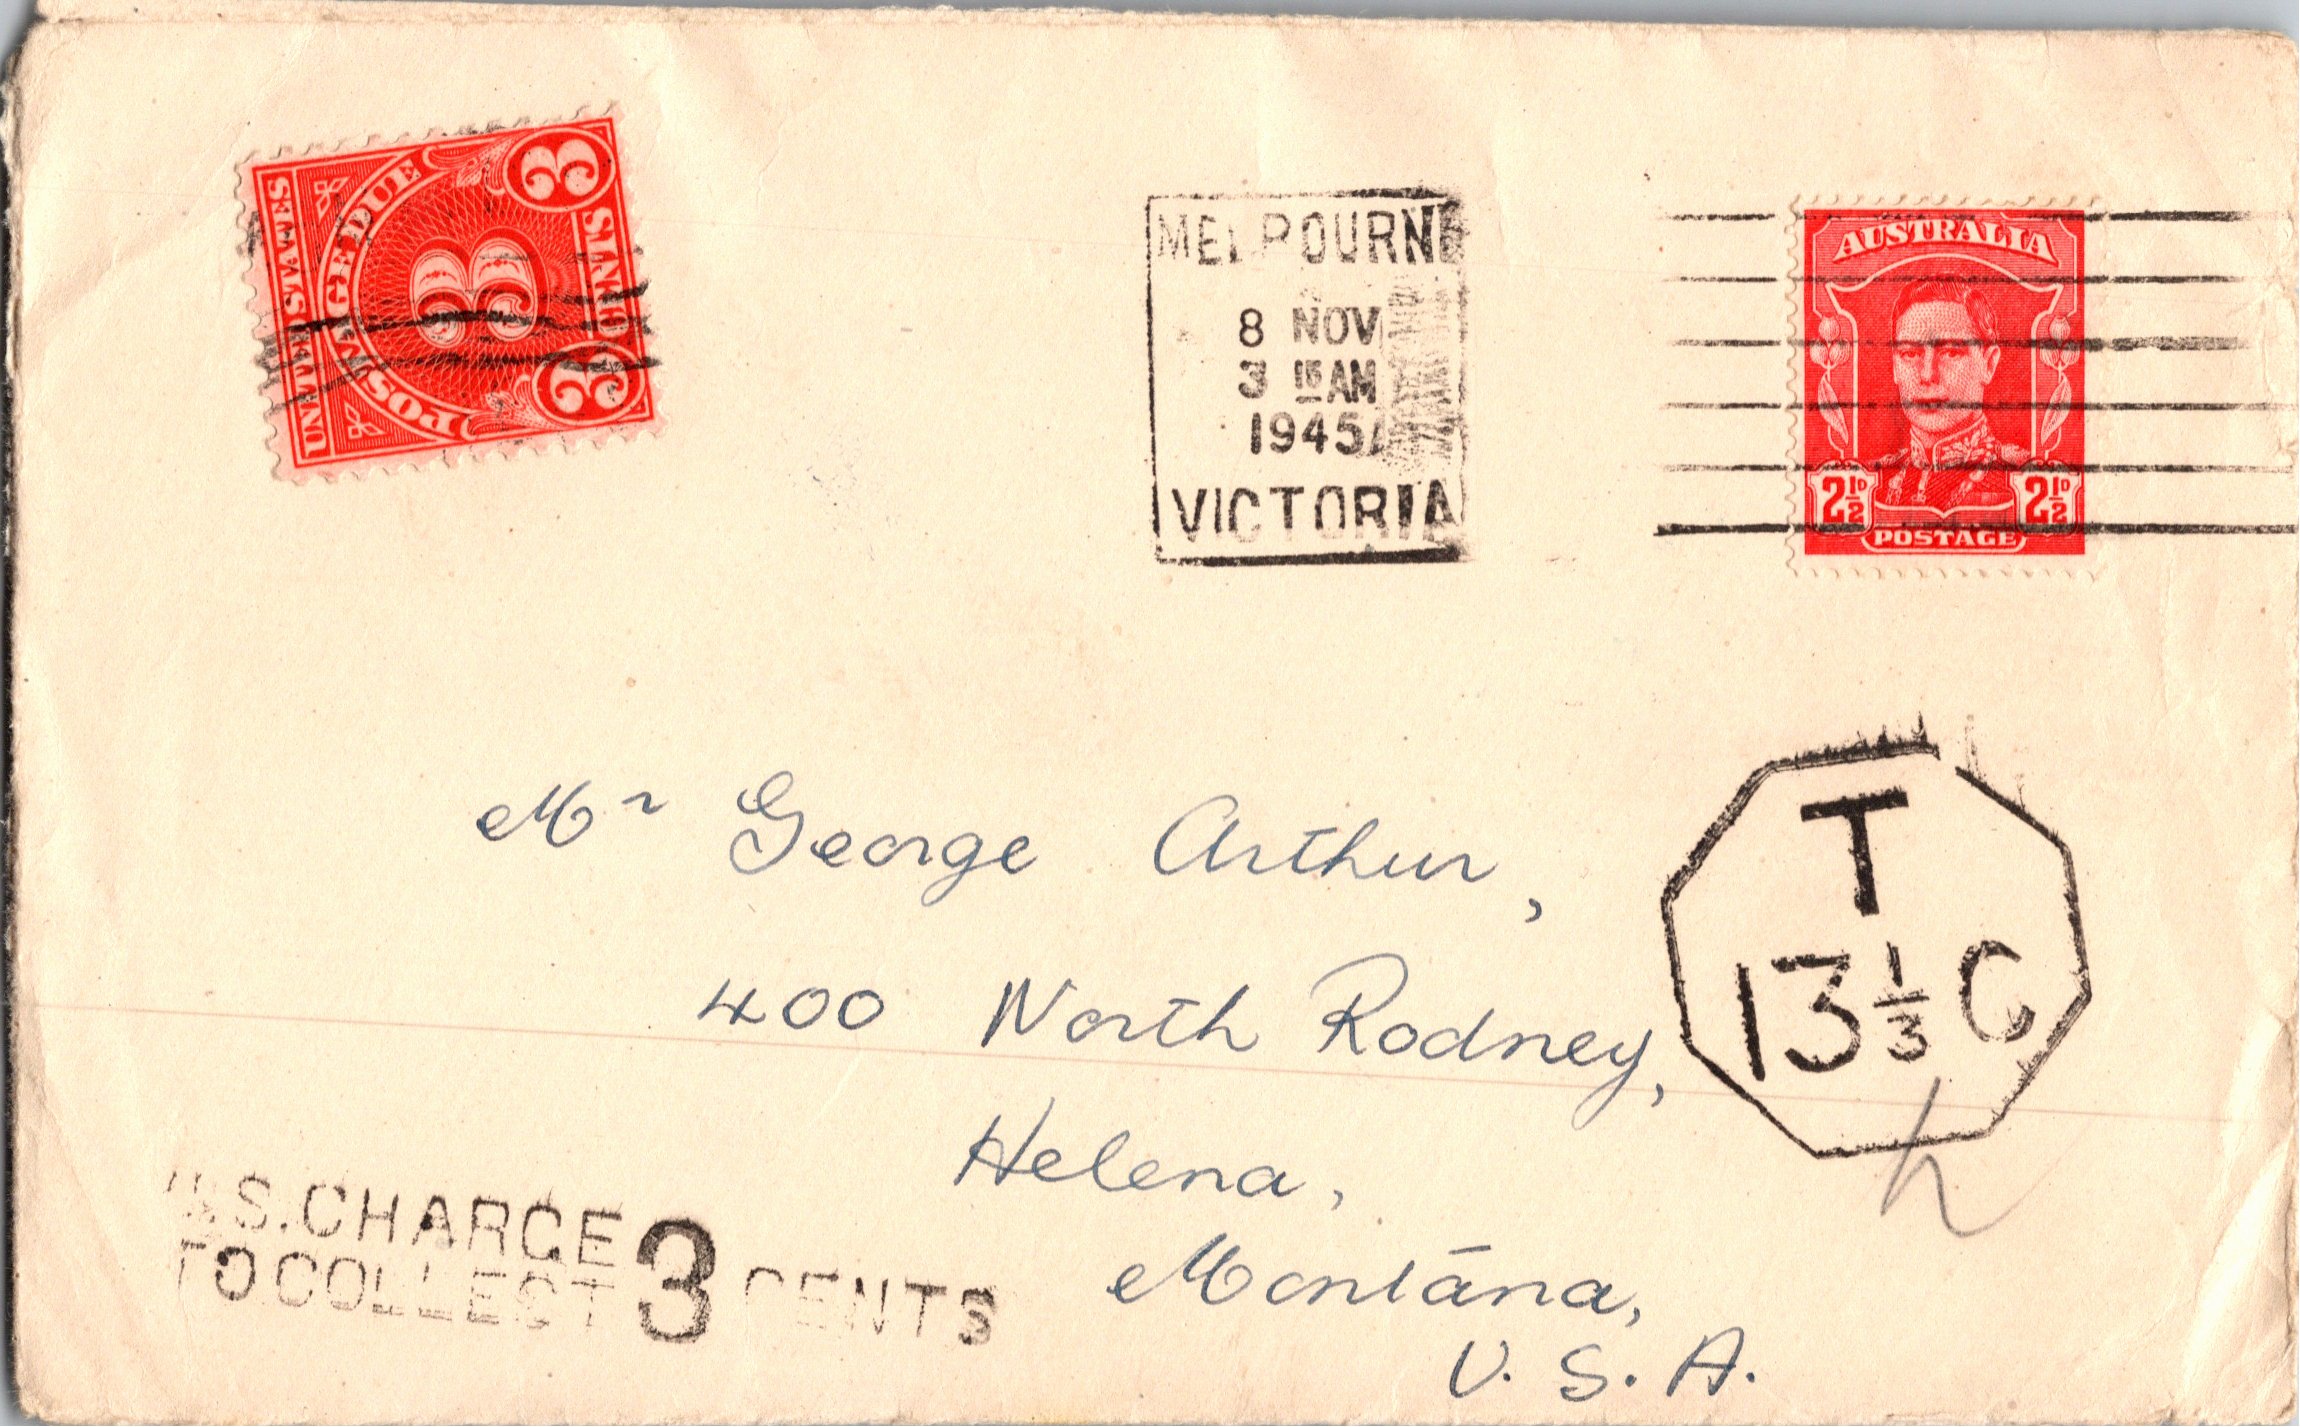 UNITED STATES
POSTAGE DUE
3
3
3
CENTS
MELBOURNE
8 NOV
3 15 AM
1945
VICTORIA
AUSTRALIA
2½D 2½D
POSTAGE
Mr George Arthur,
400 North Rodney,
Helena,
Montana,
U. S. A.
T
13⅓ C
U.S. CHARGE
TO COLLECT 3 CENTS